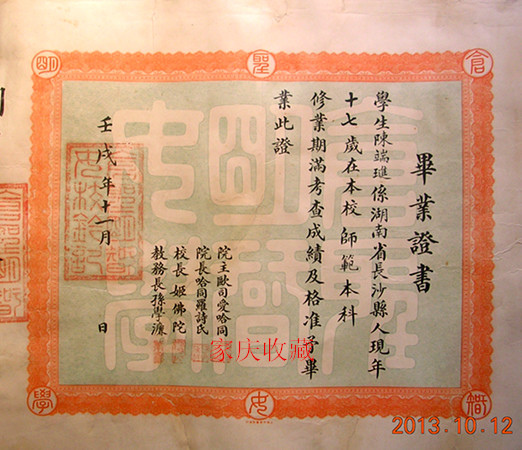 倉
聖
明
智
女
學
畢業證書
學生陳端璡係湖南省長沙縣人現年
十七歲在本校師範本科
修業期滿考查成績及格准予畢
業此證
院主歐司愛哈同
院長哈同羅詩氏
校長姬佛陀
教務長孫學濂
壬戌年十一月 日
家庆收藏
2013.10.12